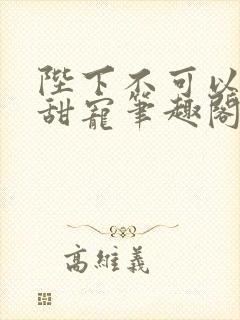 陛下不可以
甜寵筆趣閣
高維義